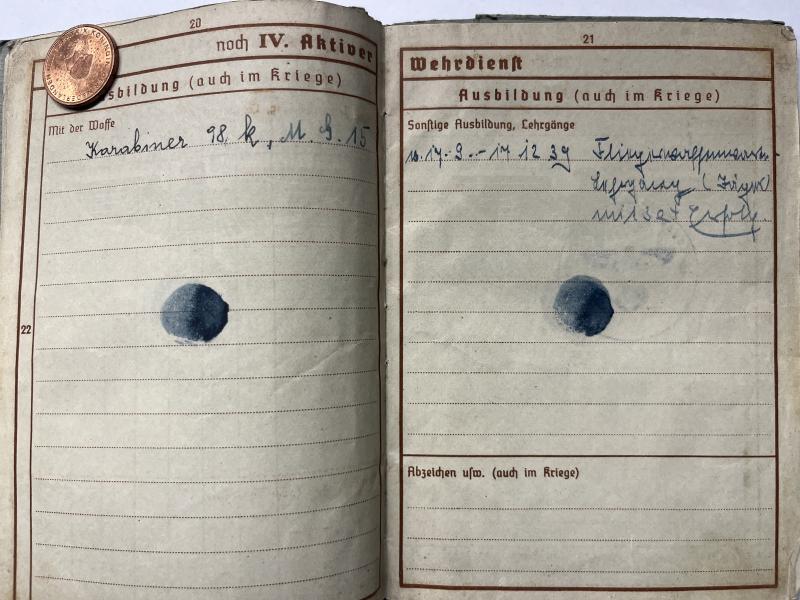 20
noch IV. Aktiver
Ausbildung (auch im Kriege)
Mit der Waffe
Karabiner 98 k, M. G. 15
22
21
Wehrdienst
Ausbildung (auch im Kriege)
Sonstige Ausbildung, Lehrgänge
17. 9. - 17 12 39
(Jäger)
mit Erfolg.
Abzeichen usw. (auch im Kriege)